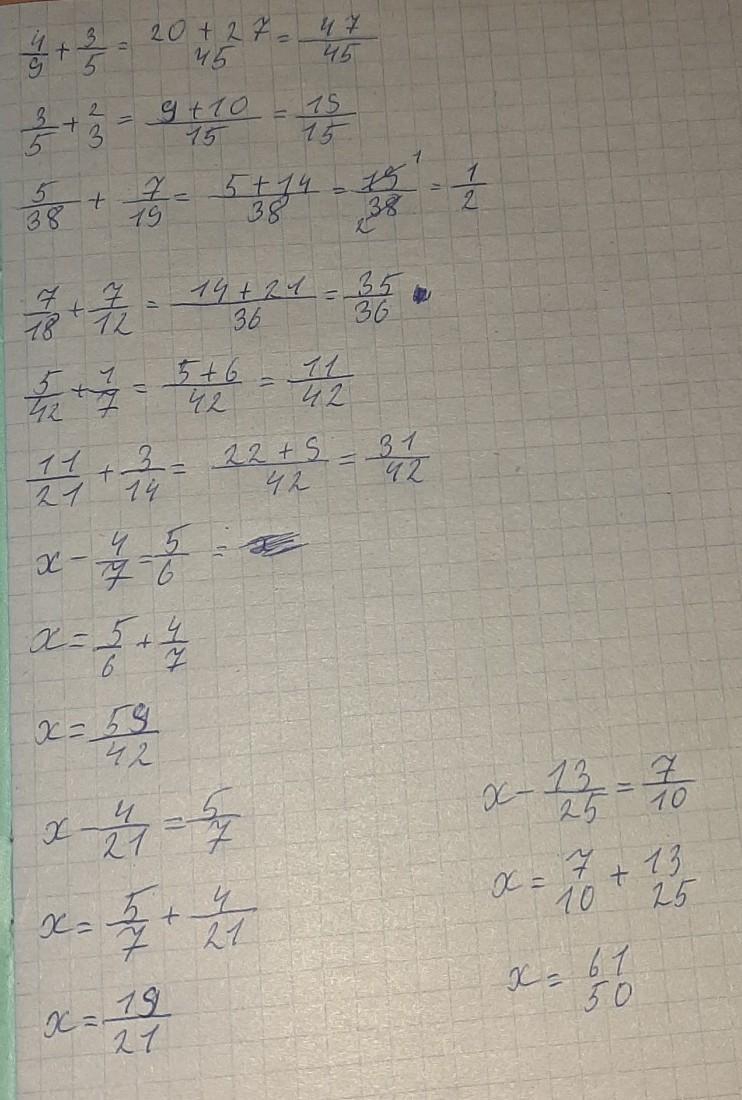 4/9 + 3/5 = 20 + 27/45 = 47/45
3/5 + 2/3 = 9 + 10/15 = 19/15
5/38 + 7/19 = 5 + 14/38 = 19 1/38 2 = 1/2
7/18 + 7/12 = 14 + 21/36 = 35/36
5/42 + 1/7 = 5 + 6/42 = 11/42
11/21 + 3/14 = 22 + 9/42 = 31/42
x - 4/7 = 5/6 =
x = 5/6 + 4/7
x = 59/42
x - 4/21 = 5/7
x = 5/7 + 4/21
x = 19/21
x - 13/25 = 7/10
x = 7/10 + 13/25
x = 61/50